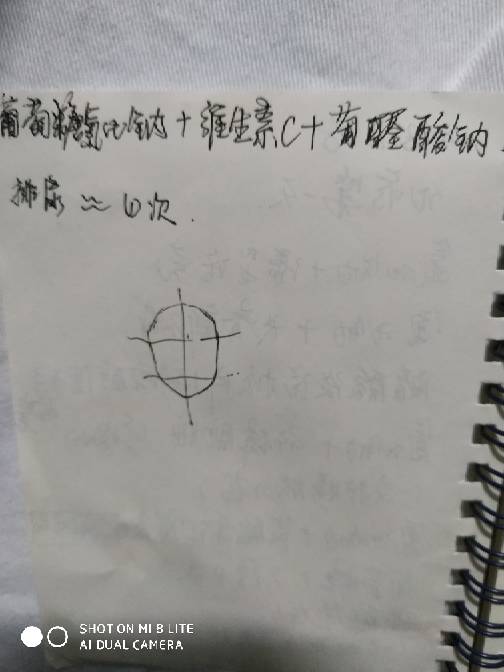 葡萄糖氯化钠+维生素C+葡醛酸钠
排尿≈6次.
SHOT ON MI 8 LITE
AI DUAL CAMERA